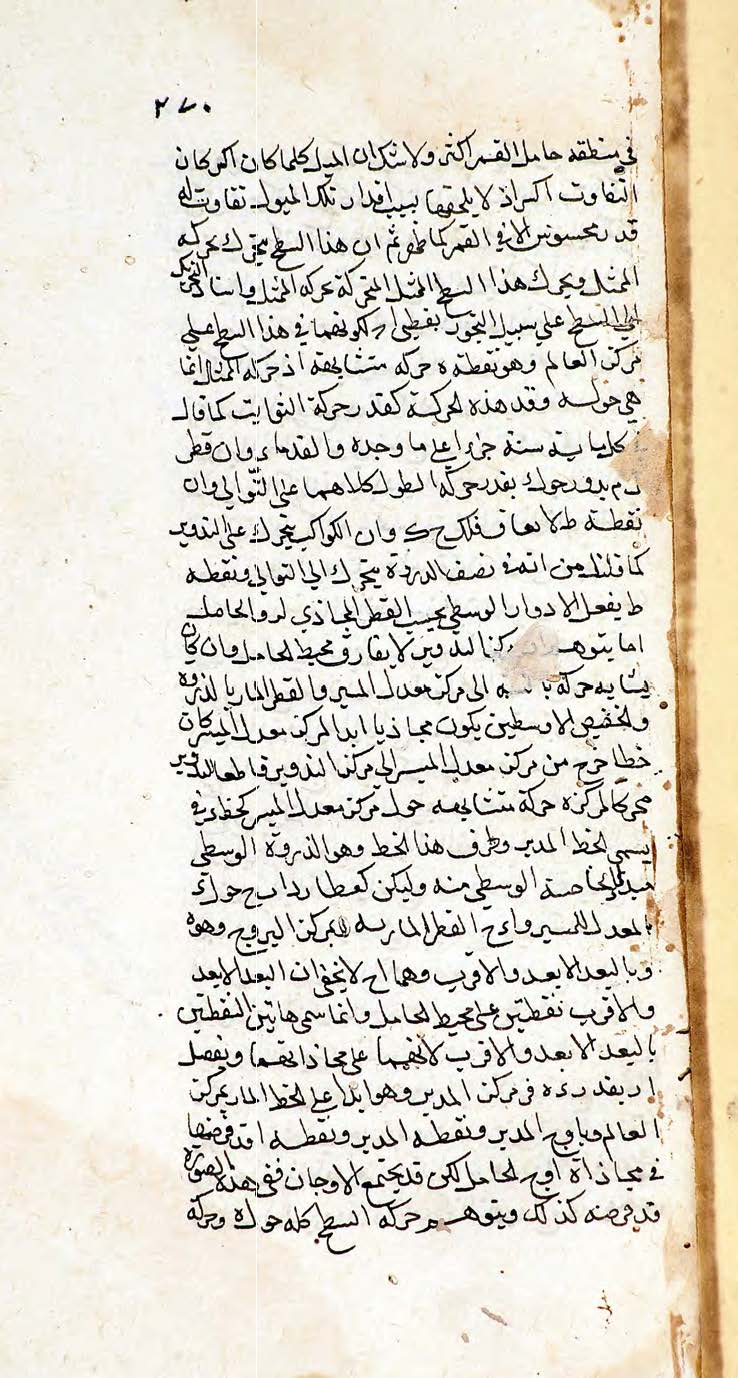 ٢٧٠
في منطقه حامل القمر اكثر ولا شك ان الميل كلما كان اكثر كان
التفاوت اكبر اذ لا يلحقها بسبب اقدار تلك الميول تفاوت له
قدر محسوس الا في القمر كما ظهر ثم ان هذا السطح يتحرك بحركه
الممثل ويحرك هذا السطح الممثل المتحركة بحركه الممثل واسناد التحريك
الى السطح على سبيل التجوز بقطبي لكونهما في هذا السطح على
مركز العالم وهو نقطة ه حركه متشابهه اذ حركه الممثل انما
هي حوله وقدر هذه الحركة كقدر حركة الثوابت كما قال
في كل ماية سنة جزء على ما وجده والقدماء وان قطر
يدور حول بقدر حركه الطول كلاهما على التوالي وان
نقطة ط لا فلك وان الكواكب يتحرك على التدوير
كما قلنا من انه في نصف الذروة يتحرك الى التوالي ونقطه
ط يفعل الادوار الوسطي بحسب القطر المحاذي لر والحامل
اما يتوهم مركز التدوير لا يفارق محيط الحامل وان كان
يشابه حركه بالنسبه الى مركز معدل المسير والقطر المار بالذروه
والحضيض الاوسطين يكون محاذيا ابدا لمركز معدل المسير كان
خطا خرج من مركز معدل المسير الى مركز التدوير قاطعا للتدوير
محركا لمركزه حركة متشابهه حول مركز معدل المسير كخط
يسمى الخط المدير وطرف هذا الخط وهو الذروة الوسطي
مبدا الخاصة الوسطي منه وليكن كعطارد حول
المعدل للمسير القطر المار به بمركز البروج وهو ه
وبالبعد الابعد والاقرب وهما ا ح لا يخفى ان البعد الابعد
والاقرب نقطتين على محيط الحامل وانما سمى هاتين النقطتين
بالبعد الابعد والاقرب لانهما على محاذاتهما ويفصل
بقدر مركز المدير وهو ابدا على الخط المار بمركز
العالم وباوج المدير ونقطه المدير ونقطه ا قد فرضها
في محاذاة اوج الحامل لكن قد يجتمع الاوجان ففي هذه الصورة
قد فرضه كذلك ويتوهم حركه السطح كله حول ه وحركه